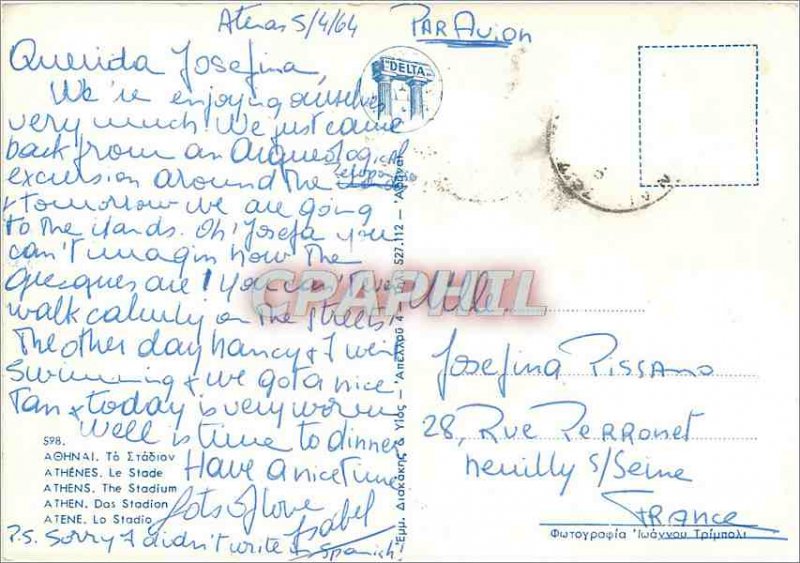 Atenas 5/4/64
PAR Avion
Querida Josefina,
We're enjoying ourselves
very much. We just came
back from an Arqueological
excursion around the Peloponeso
& tomorrow we are going
to the ilands. Oh! Josefa you
can't imagin how the
grecques are! You can't even
walk calmly on the streets!
The other day Nancy & I went
swimming & we got a nice
Tan & today is very worm
Well is time to dinner
Have a nice time
Lots of love
Isabel
P.S. Sorry I didn't write in Spanish.
DELTA
598.
ΑΘΗΝΑΙ. Τὸ Στάδιον
ATHÈNES. Le Stade
ATHENS. The Stadium
ATHEN. Das Stadion
ATENE. Lo Stadio
Ἐμμ. Διακάκης & Υἱός - Ἀπέλλοῦ 4 - 527.112 - Ἀθῆναι
CPAPHIL
Mlle
Josefina Pissano
28, Rue Perronet
Neuilly s/Seine
France
Φωτογραφία Ἰωάννου Τρίμπολι